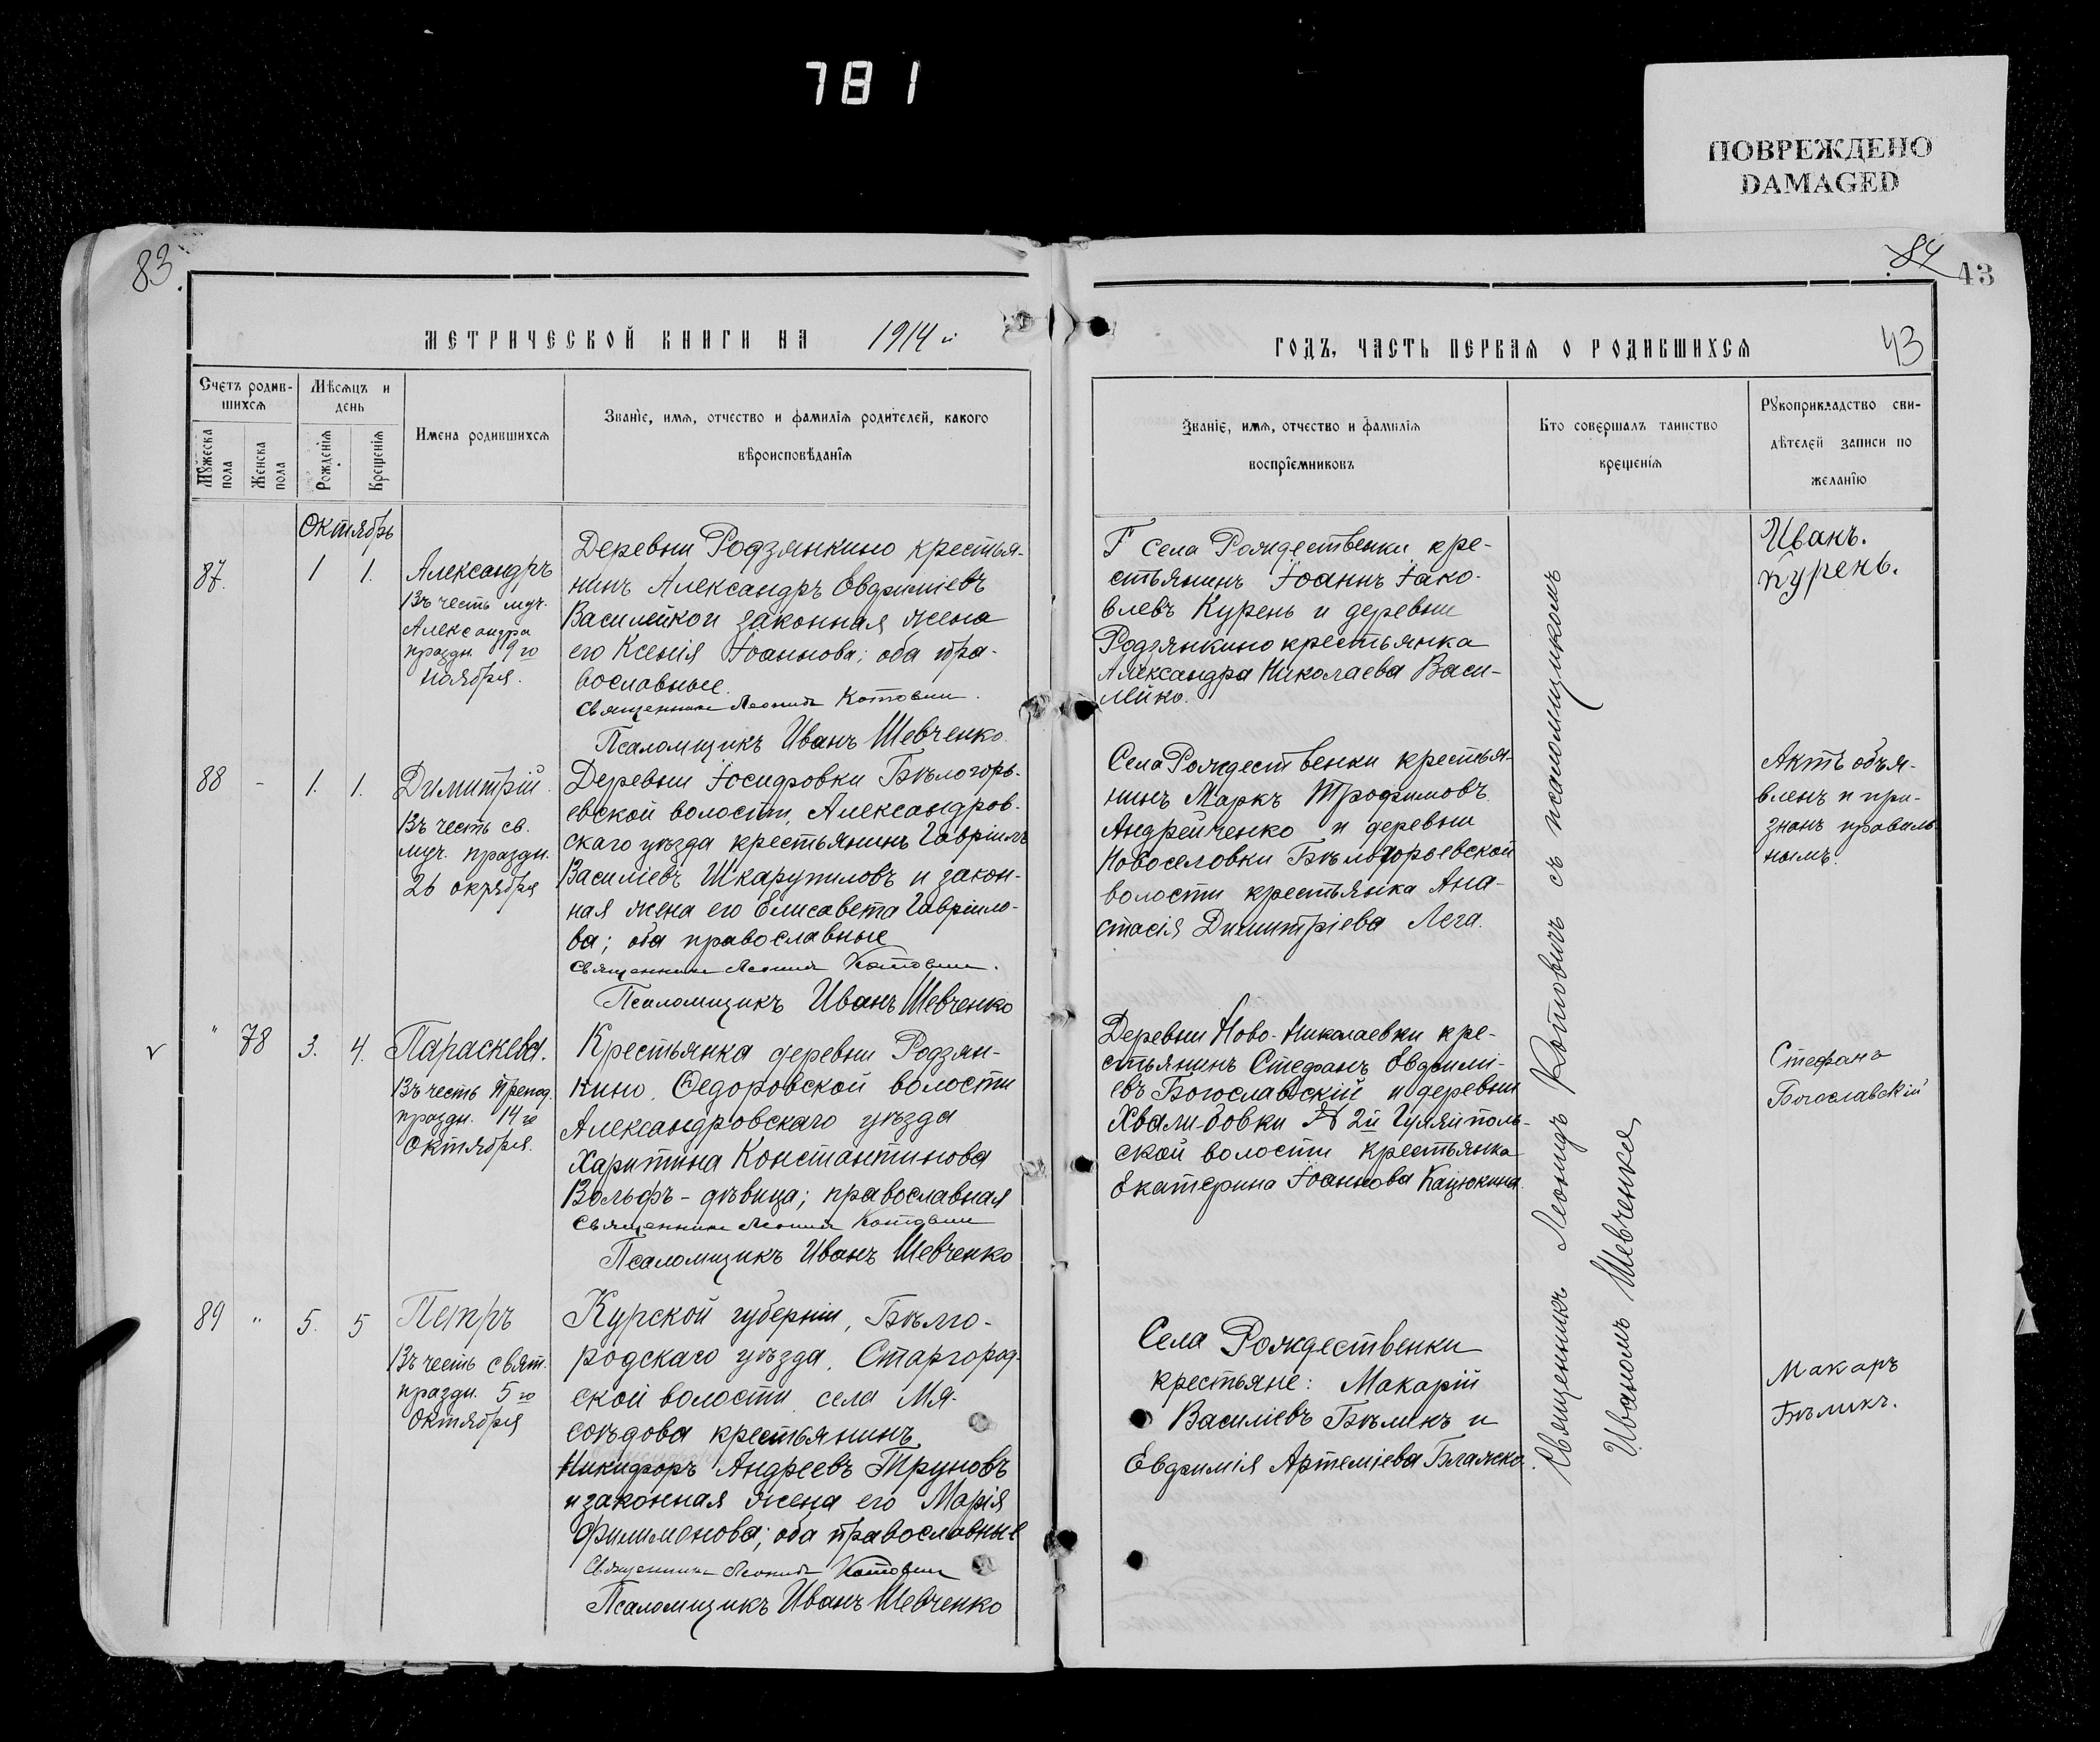 781
ПОВРЕЖДЕНО
DAMAGED
83.
84
43
МЕТРИЧЕСКОЙ КНИГИ НА 1914 й
ГОДЪ, ЧАСТЬ ПЕРВАЯ О РОДИВШИХСЯ
43
Счетъ родив-
шихся
Мужеска пола
Женска пола
Мѣсяцъ и
день
Рожденія
Крещенія
Имена родившихся
Званіе, имя, отчество и фамилія родителей, какого
вѣроисповѣданія
Званіе, имя, отчество и фамилія
воспріемниковъ
Кто совершалъ таинство
крещенія
Рукоприкладство сви-
дѣтелей записи по
желанію
Октябрь
87. 1 1.
Александръ
Въ честь муч.
Александра
праздн. 9го
ноября.
Деревни Родзянкино крестья-
нинъ Александръ Евфиміевъ
Василейкои законная жена
его Ксенія Іоаннова; оба пра-
вославные.
Священникъ Леонидъ Котович.
Псаломщикъ Иванъ Шевченко.
Села Рождественки кре-
стьянинъ Іоаннъ Іако-
влевъ Курень и деревни
Родзянкино крестьянка
Александра Николаева Васи-
лейко.
Иванъ.
Курень.
88 - 1. 1.
Димитрій.
Въ честь св.
муч. праздн.
26 окрября
Деревни Іосифовки Бѣлогорь-
евской волости, Александров-
скаго уѣзда крестьянинъ Гавріилъ
Василіевъ Шкарупиловъ и закон-
ная жена его Елисавета Гавріило-
ва; оба православные
Священникъ Леонидъ Котович.
Псаломщикъ Иванъ Шевченко
Села Рождественки крестья-
нинъ Маркъ Трофимовъ
Андрейченко и деревни
Новоселовки Бѣлогорьевской
волости крестьянка Ана-
стасія Димитріева Лега.
Актъ объя-
вленъ и при-
знанъ правиль-
нымъ.
v " 78 3. 4.
Параскева.
Въ честь Препод.
праздн. 14го
Октября.
Крестьянка деревни Родзян-
кино, Ѳедоровской волости
Александровскаго уѣзда
Харитина Константинова
Вольфъ - дѣвица; православная
Священникъ Леонидъ Котович
Псаломщикъ Иванъ Шевченко
Деревни Ново-Николаевки кре-
стьянинъ Стефанъ Евфимі-
евъ Богославскій и деревни
Хвалибовки № 2й Гуляйполь-
ской волости крестьянка
Екатерина Іоаннова Кацюкина.
Стефанъ
Богославскій
89 " 5. 5
Петръ
Въ честь свят.
праздн. 5го
Октября
Курской губерніи, Бѣлго-
родскаго уѣзда, Старгород-
ской волости села Мя-
соѣдова крестьянинъ
Никифоръ Андреевъ Труновъ
и законная жена его Марія
Филимонова; оба православные
Священникъ Леонидъ Котович
Псаломщикъ Иванъ Шевченко
Села Рождественки
крестьяне: Макарій
Василіевъ Бѣликъ и
Евфимія Артеміева Блажко.
Макаръ
Бѣликъ.
Священникъ Леонидъ Котовичъ съ псаломщикомъ
Иваномъ Шевченко